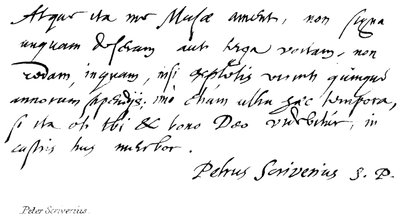 Atque ita me Musæ ament, non signa
unquam deseram aut terga vortam, non
cedam, inquam, nisi expletis quinque
annorum stipendijs; imò etiam ultra hæc tempora,
si ita tibi & bono Deo videbitur, in
castris tuis merebor.
Petrus Scriverius S. P.
Peter Scriverius.